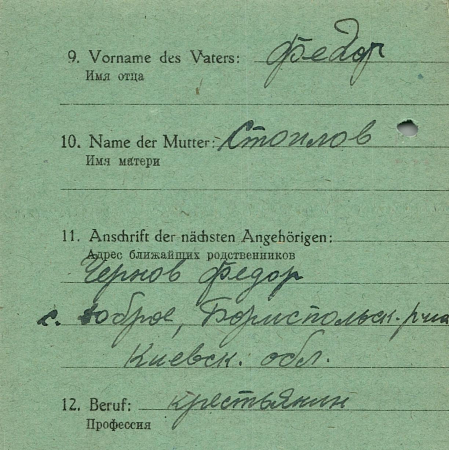 9. Vorname des Vaters: Федор
Имя отца
10. Name der Mutter: Стоилов
Имя матери
11. Anschrift der nächsten Angehörigen:
Адрес ближайших родственников
Чернов Федор
с. Доброе, Бориспольск. р-на
Киевск. обл.
12. Beruf: крестьянин
Профессия